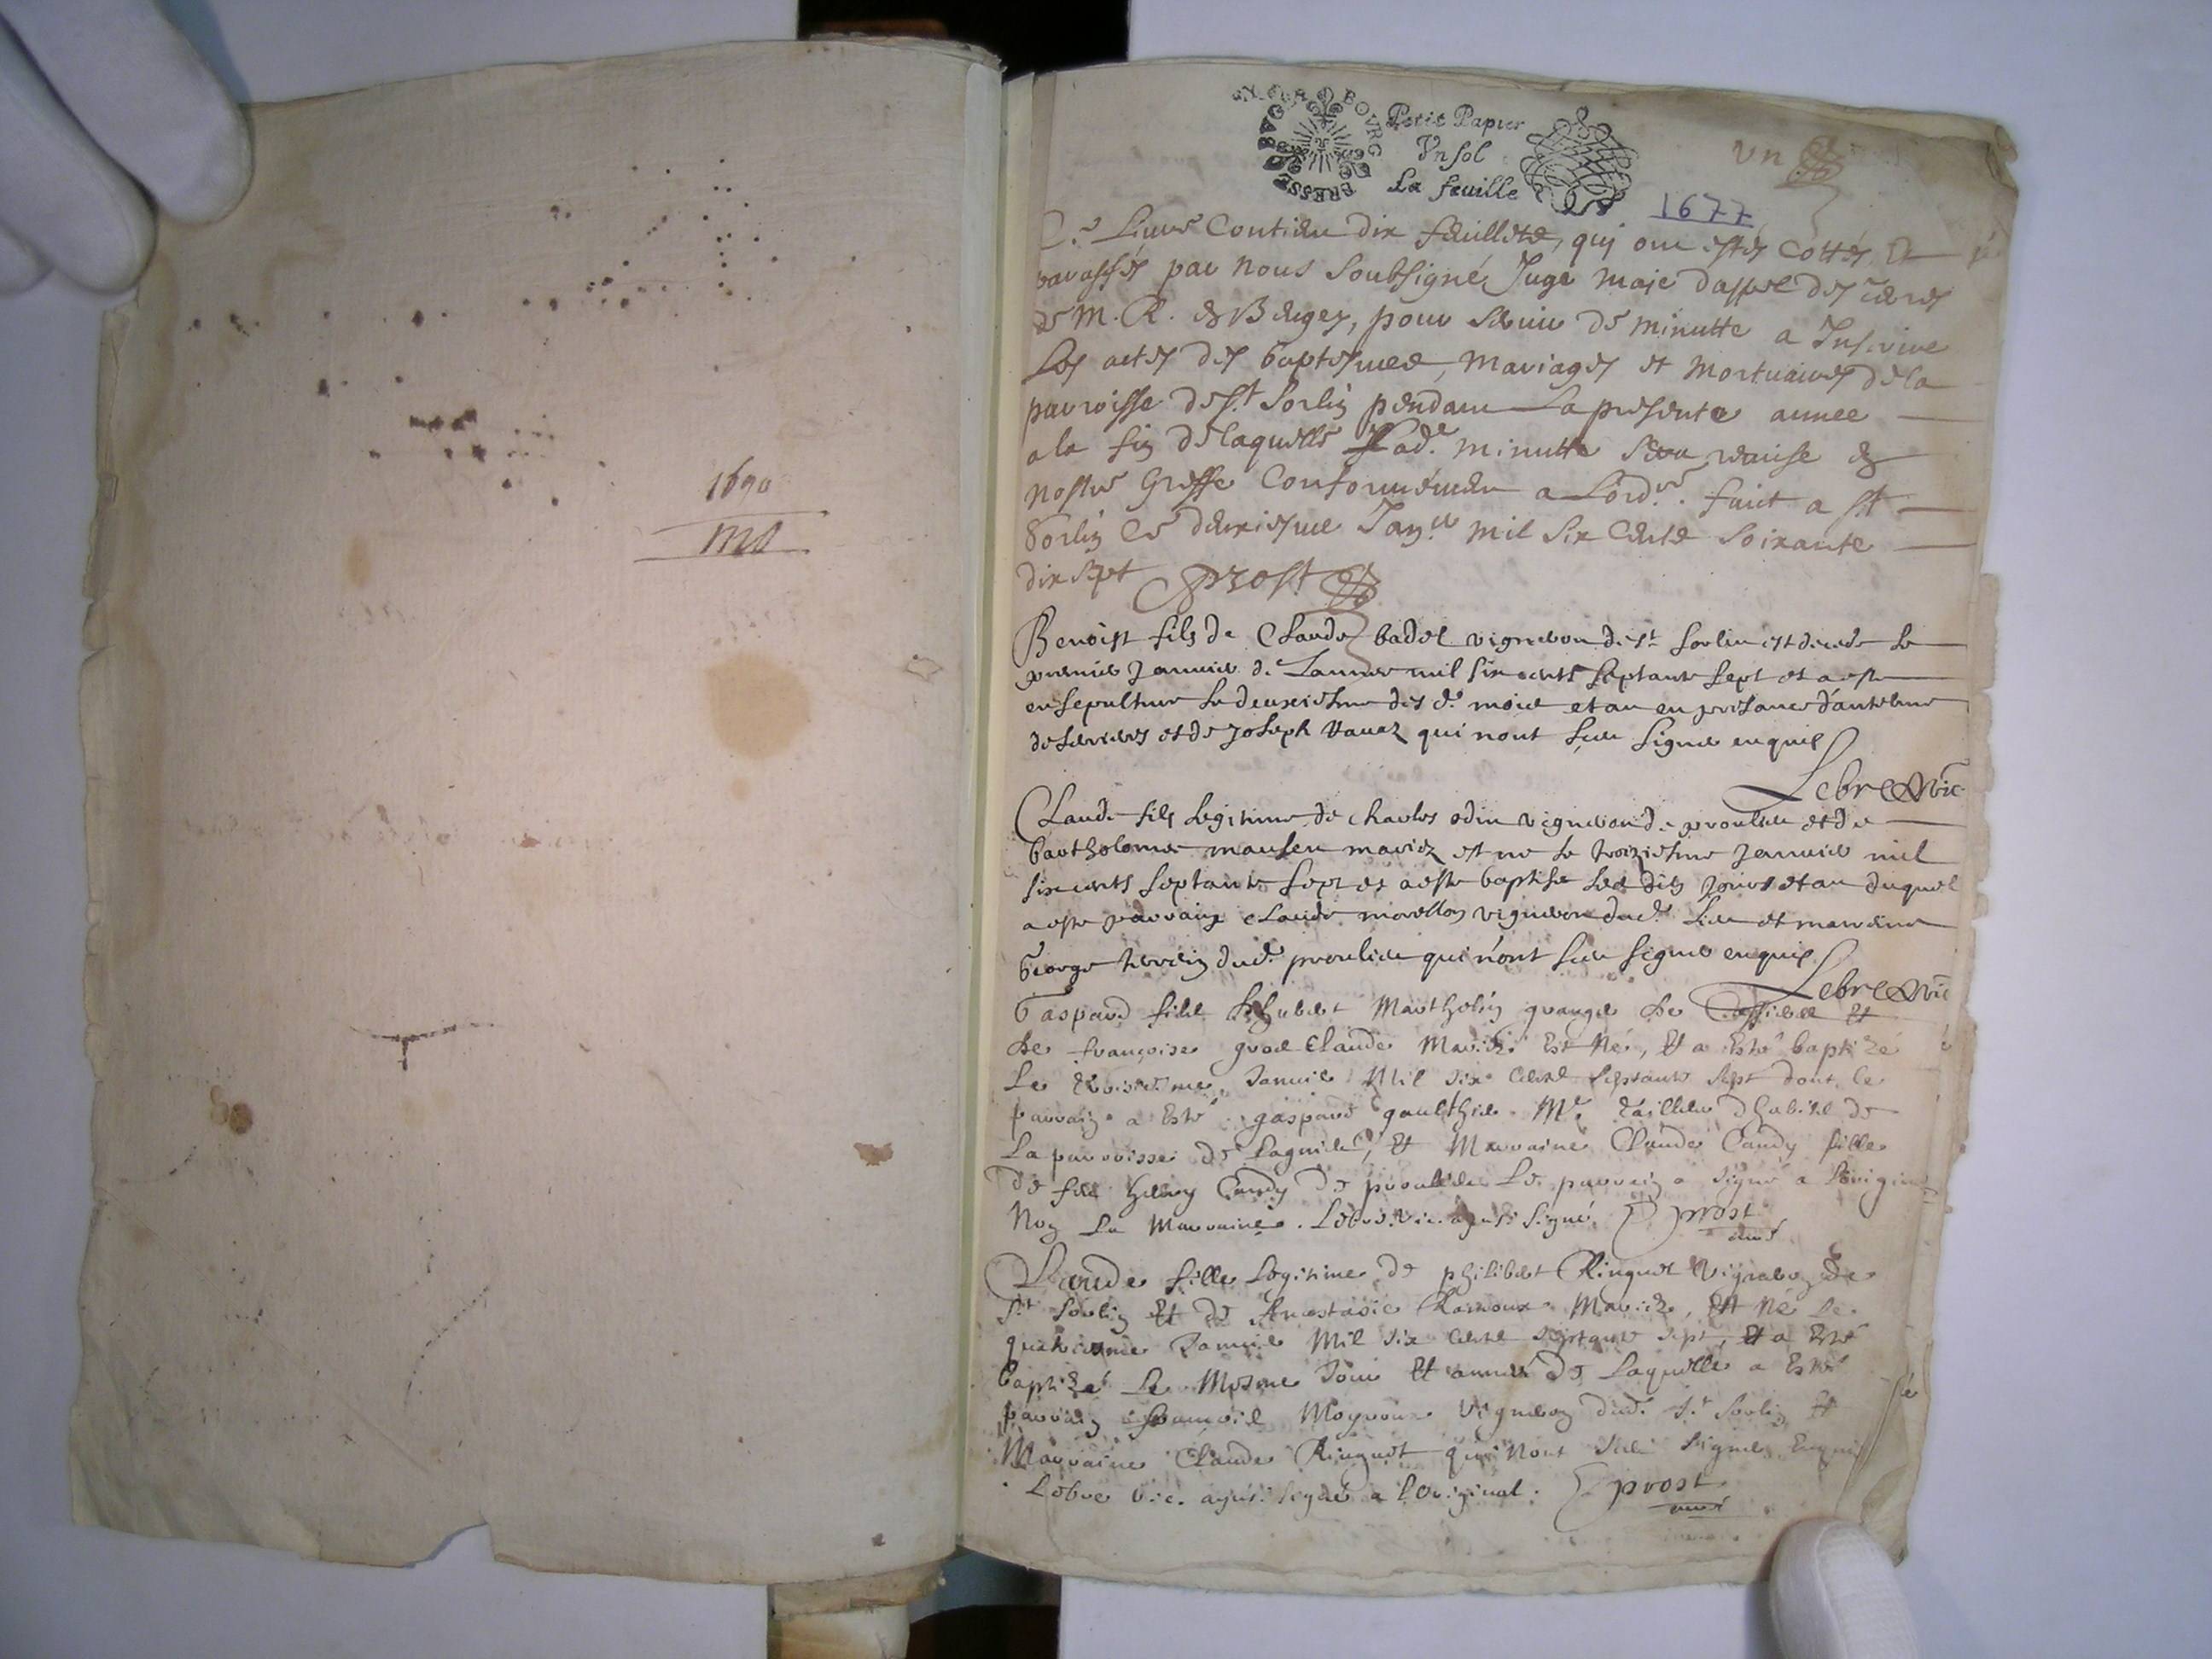 1690
Petit Papier
Vn sol
La feuille
BOVRG BRESSE
vn
1677
Ce Liure Contient dix feuillets, qui ont estés cottés Et
parasfés par nous soubsigné Juge maje dappel des terres
de M. R. en Bugey, pour seruir de minutte a Inscrire
Les actes des baptesmes, Mariages et Mortuaires de la
parroisse de st Sorlin pendant La presente annee
a la fin de laquelle Lade minutte sera remise en
nostre Greffe Conformément a Lordce. faict a st
Sorlin Ce deuxiesme Janer mil six Cents soixante
dix sept Prost
Benoist fils de Claude badel vigneron de st sorlin est decede le
premier Januier de Lannee mil six cents septante sept et a este
ensepulture le deuxiesme des dt mois et an en presence dantelme
de et de Joseph qui nont sceu signer enquis
Lebre vic
Claude fils legitime de Charles odin vigneron de proulieu et de
bartholomee mariez est ne le troiziesme Januier mil
six cents septante sept et a este baptise les dits jours et an duquel
a este parrain Claude morellon vigneron dudt lieu et marreine
George dudt proulieu qui n'ont sceu signer enquis
Lebre vic
Gaspard fils de hubert Marthelin granger de Et
de françoise Claude Mariés Est Né, Et a Esté baptizé
Le Troisiesme Januier Mil six Cents septante sept dont le
parrain a Esté gaspard gaulthier Me Tailleur dhabits de
La parroisse de Lagnieu, Et Marraine Claude Candy fille
de feu henry Candy de proulieu Le parrain a signé a Loriginal
Non La Marraine. Lebre vic. ainsi signé Prost
Claude fille Legitime de philibert Ringuet Vigneron de
st sorlin Et de Anastasie Ramoux Mariés, Est Né Le
quatriesme Januier Mil six Cents septante sept, Et a Esté
baptizé Le Mesme Jour Et année De Laquelle a Esté
parrain françois Vigneron dudt st sorlin Et
Marraine Claude Ringuet qui Nont sceu signer Enquis
Lebre vic. ainsi signé a l'original. Prost